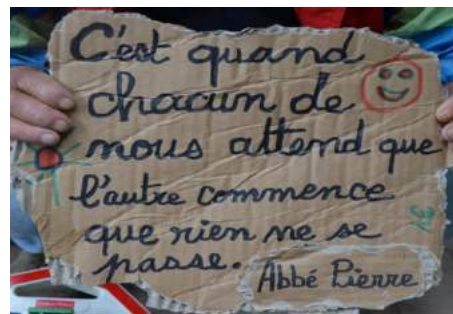 C'est quand
chacun de
nous attend que
l'autre commence
que rien ne se
passe.
Abbé Pierre